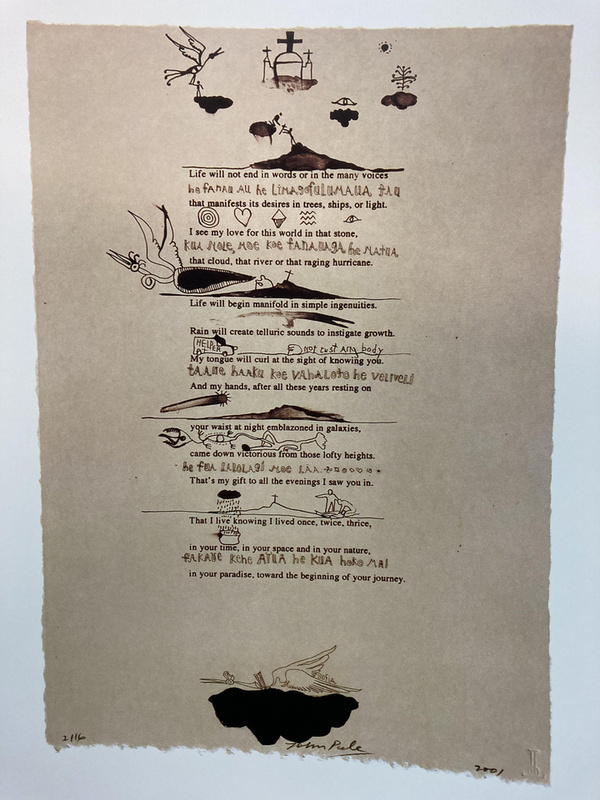 Life will not end in words or in the many voices
he fanau au he
that manifests its desires in trees, ships, or light.
I see my love for this world in that stone,
koe fanauaga he matua
that cloud, that river or that raging hurricane.
Life will begin manifold in simple ingenuities.
Rain will create telluric sounds to instigate growth.
HELPER not Just any body
My tongue will curl at the sight of knowing you.
haaku koe vahaloto he
And my hands, after all these years resting on
your waist at night emblazoned in galaxies,
came down victorious from those lofty heights.
he
That's my gift to all the evenings I saw you in.
That I live knowing I lived once, twice, thrice,
in your time, in your space and in your nature,
kehe ATUA he KUA hoko mai
in your paradise, toward the beginning of your journey.
John Pule
2/16
2001